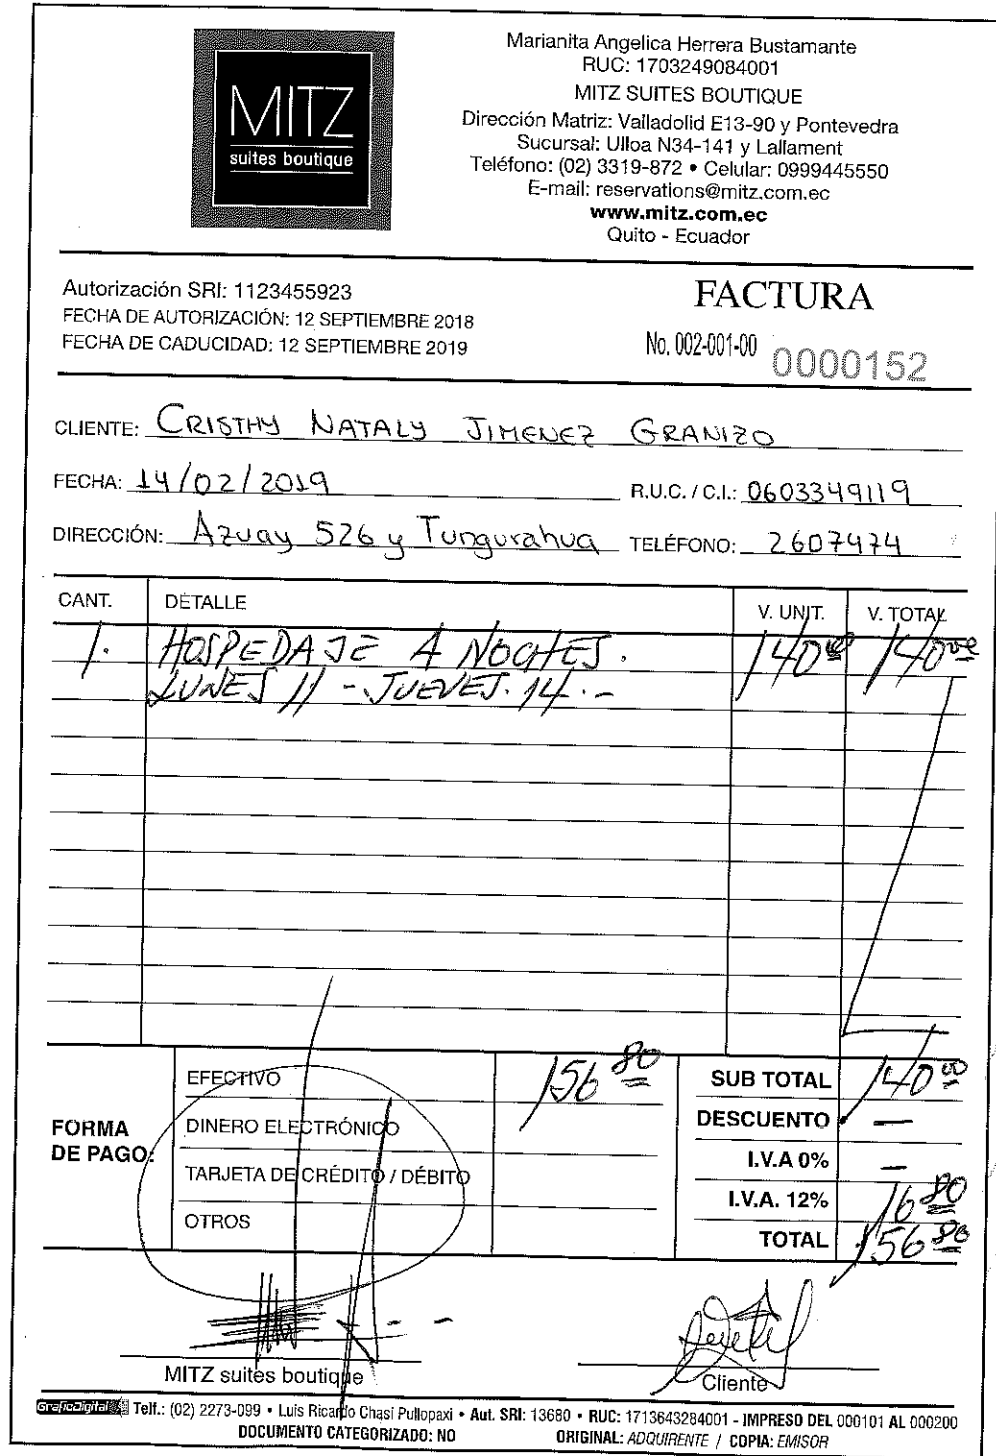 MITZ
suites boutique
Marianita Angelica Herrera Bustamante
RUC: 1703249084001
MITZ SUITES BOUTIQUE
Dirección Matriz: Valladolid E13-90 y Pontevedra
Sucursal: Ulloa N34-141 y Lallament
Teléfono: (02) 3319-872 • Celular: 0999445550
E-mail: reservations@mitz.com.ec
www.mitz.com.ec
Quito - Ecuador
Autorización SRI: 1123455923
FECHA DE AUTORIZACIÓN: 12 SEPTIEMBRE 2018
FECHA DE CADUCIDAD: 12 SEPTIEMBRE 2019
FACTURA
No. 002-001-00 0000152
CLIENTE: CRISTHY NATALY JIMENEZ GRANIZO
FECHA: 14/02/2019 R.U.C. / C.I.: 0603349119
DIRECCIÓN: Azuay 526 y Tungurahua TELÉFONO: 2607474
CANT. DETALLE V. UNIT. V. TOTAL
1. HOSPEDAJE 4 NOCHES. 140 00 140 00
LUNES 11 - JUEVES. 14.-
FORMA DE PAGO:
EFECTIVO 156 80
DINERO ELECTRÓNICO
TARJETA DE CRÉDITO / DÉBITO
OTROS
SUB TOTAL 140 00
DESCUENTO —
I.V.A 0% —
I.V.A. 12% 16 80
TOTAL 156 80
MITZ suites boutique
Cliente
GraficDigital Telf.: (02) 2273-099 • Luis Ricardo Chasi Pullopaxi • Aut. SRI: 13680 • RUC: 1713643284001 - IMPRESO DEL 000101 AL 000200
DOCUMENTO CATEGORIZADO: NO ORIGINAL: ADQUIRENTE / COPIA: EMISOR